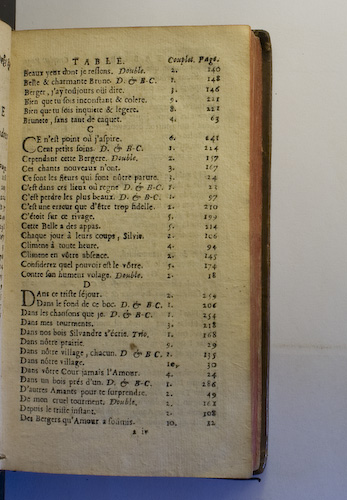 TABLE. Couplet. Page.
Beaux yeux dont je ressens. Double. 2. 140
Belle & charmante Brune. D. & B-C. 1. 148
Berger, j'ay toûjours oüi dire. 3. 146
Bien que tu sois inconstant & colere. 5. 211
Bien que tu sois inquiete & legere. 8. 221
Brunete, sans tant de caquet. 4. 63
C
CE n'est point où j'aspire. 6. 241
Cent petits soins. D. & B-C. 1. 214
Cependant cette Bergere. Double. 2. 157
Ces chants nouveaux n'ont. 3. 167
Ce sont les fleurs qui font nôtre parure. 3. 24
C'est dans ces lieux où regne D. & B-C. 1.
C'est perdre les plus beaux. D. & B-C. 1. 97
C'est une erreur que d'être trop fidelle. 2. 210
C'étoit sur ce rivage. 5. 199
Cette Belle a des appas. 5. 114
Chaque jour à leurs coups, Silvie. 2. 106
Climene à toute heure. 4. 94
Climene en vôtre absence. 2. 145
Considerez quel pouvoir est le vôtre. 5. 174
Contre son humeur volage. Double. 2. 18
D
DAns ce triste séjour. 2. 244
Dans le fond de ce boc. D. & B-C. 1. 206
Dans les chansons que je. D. & B-C. 1. 254
Dans mes tourments. 3. 218
Dans nos bois Silvandre s'écrie. Trio. 1. 168
Dans nôtre prairie. 5. 29
Dans nôtre village, chacun. D & B C. 1. 135
Dans nôtre village. 10. 30
Dans vôtre Cour jamais l'Amour. 4. 24
Dans un bois prés d'un. D. & B-C. 1. 286
D'autres Amants pour te surprendre. 2. 49
De mon cruel tourment. Double. 2. 161
Depuis le triste instant. 2. 108
Des Bergers qu'Amour a soûmis. 10. 12
a iv